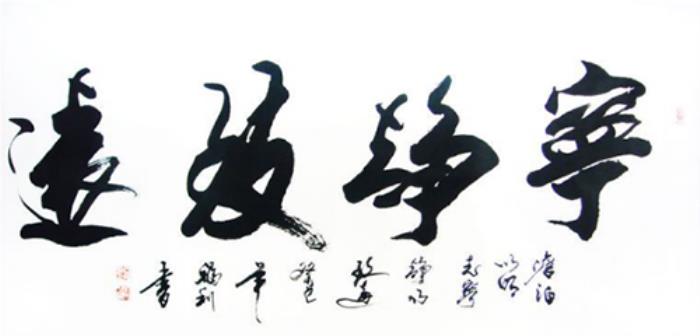 寧靜致遠
澹泊
以明
志寧
靜以
致遠
癸巳
年
利
書